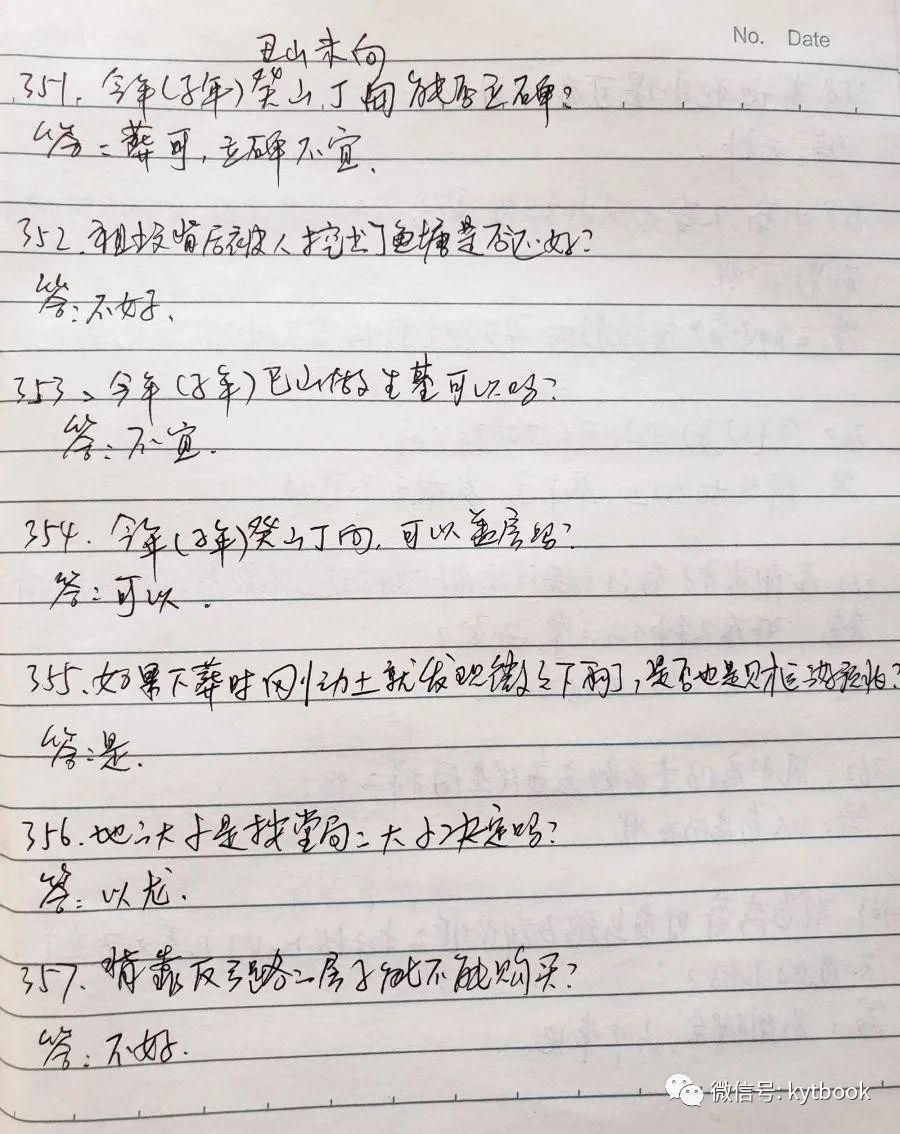 No. Date
丑山未向
351. 今年(子年)癸山丁向能否立碑?
答:葬可,立碑不宜.
352. 祖坟背后被人挖出了鱼塘是否还好?
答:不好.
353、今年(子年)巳山做生基可以吗?
答:不宜.
354. 今年(子年)癸山丁向,可以盖房吗?
答:可以.
355. 如果下葬时刚动土就发现微之下雨了,是否也是财运
答:是.
356. 地之大小是按堂局之大小决定吗?
答:以龙.
357. 背靠反弓路之房子能不能购买?
答:不好.
微信号: kytbook